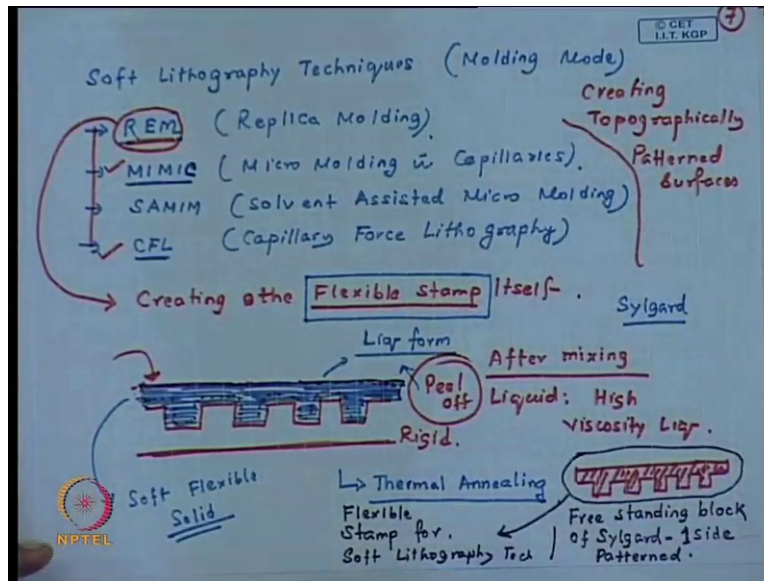 © CET
I.I.T. KGP
7
Soft Lithography Techniques (Molding Mode)
REM (Replica Molding).
MIMIC (Micro Molding in Capillaries).
SAMIM (Solvent Assisted Micro Molding)
CFL (Capillary Force Lithography)
Creating
Topographically
Patterned
Surfaces
Creating the Flexible Stamp Itself.
Sylgard
Liqr form
Peel
off
After mixing
Liquid: High
Viscosity Liqr.
Rigid.
Soft Flexible
Solid
Thermal Annealing
Flexible
Stamp for.
Soft Lithography Tech
Free standing block
of Sylgard - 1 side
Patterned.
NPTEL